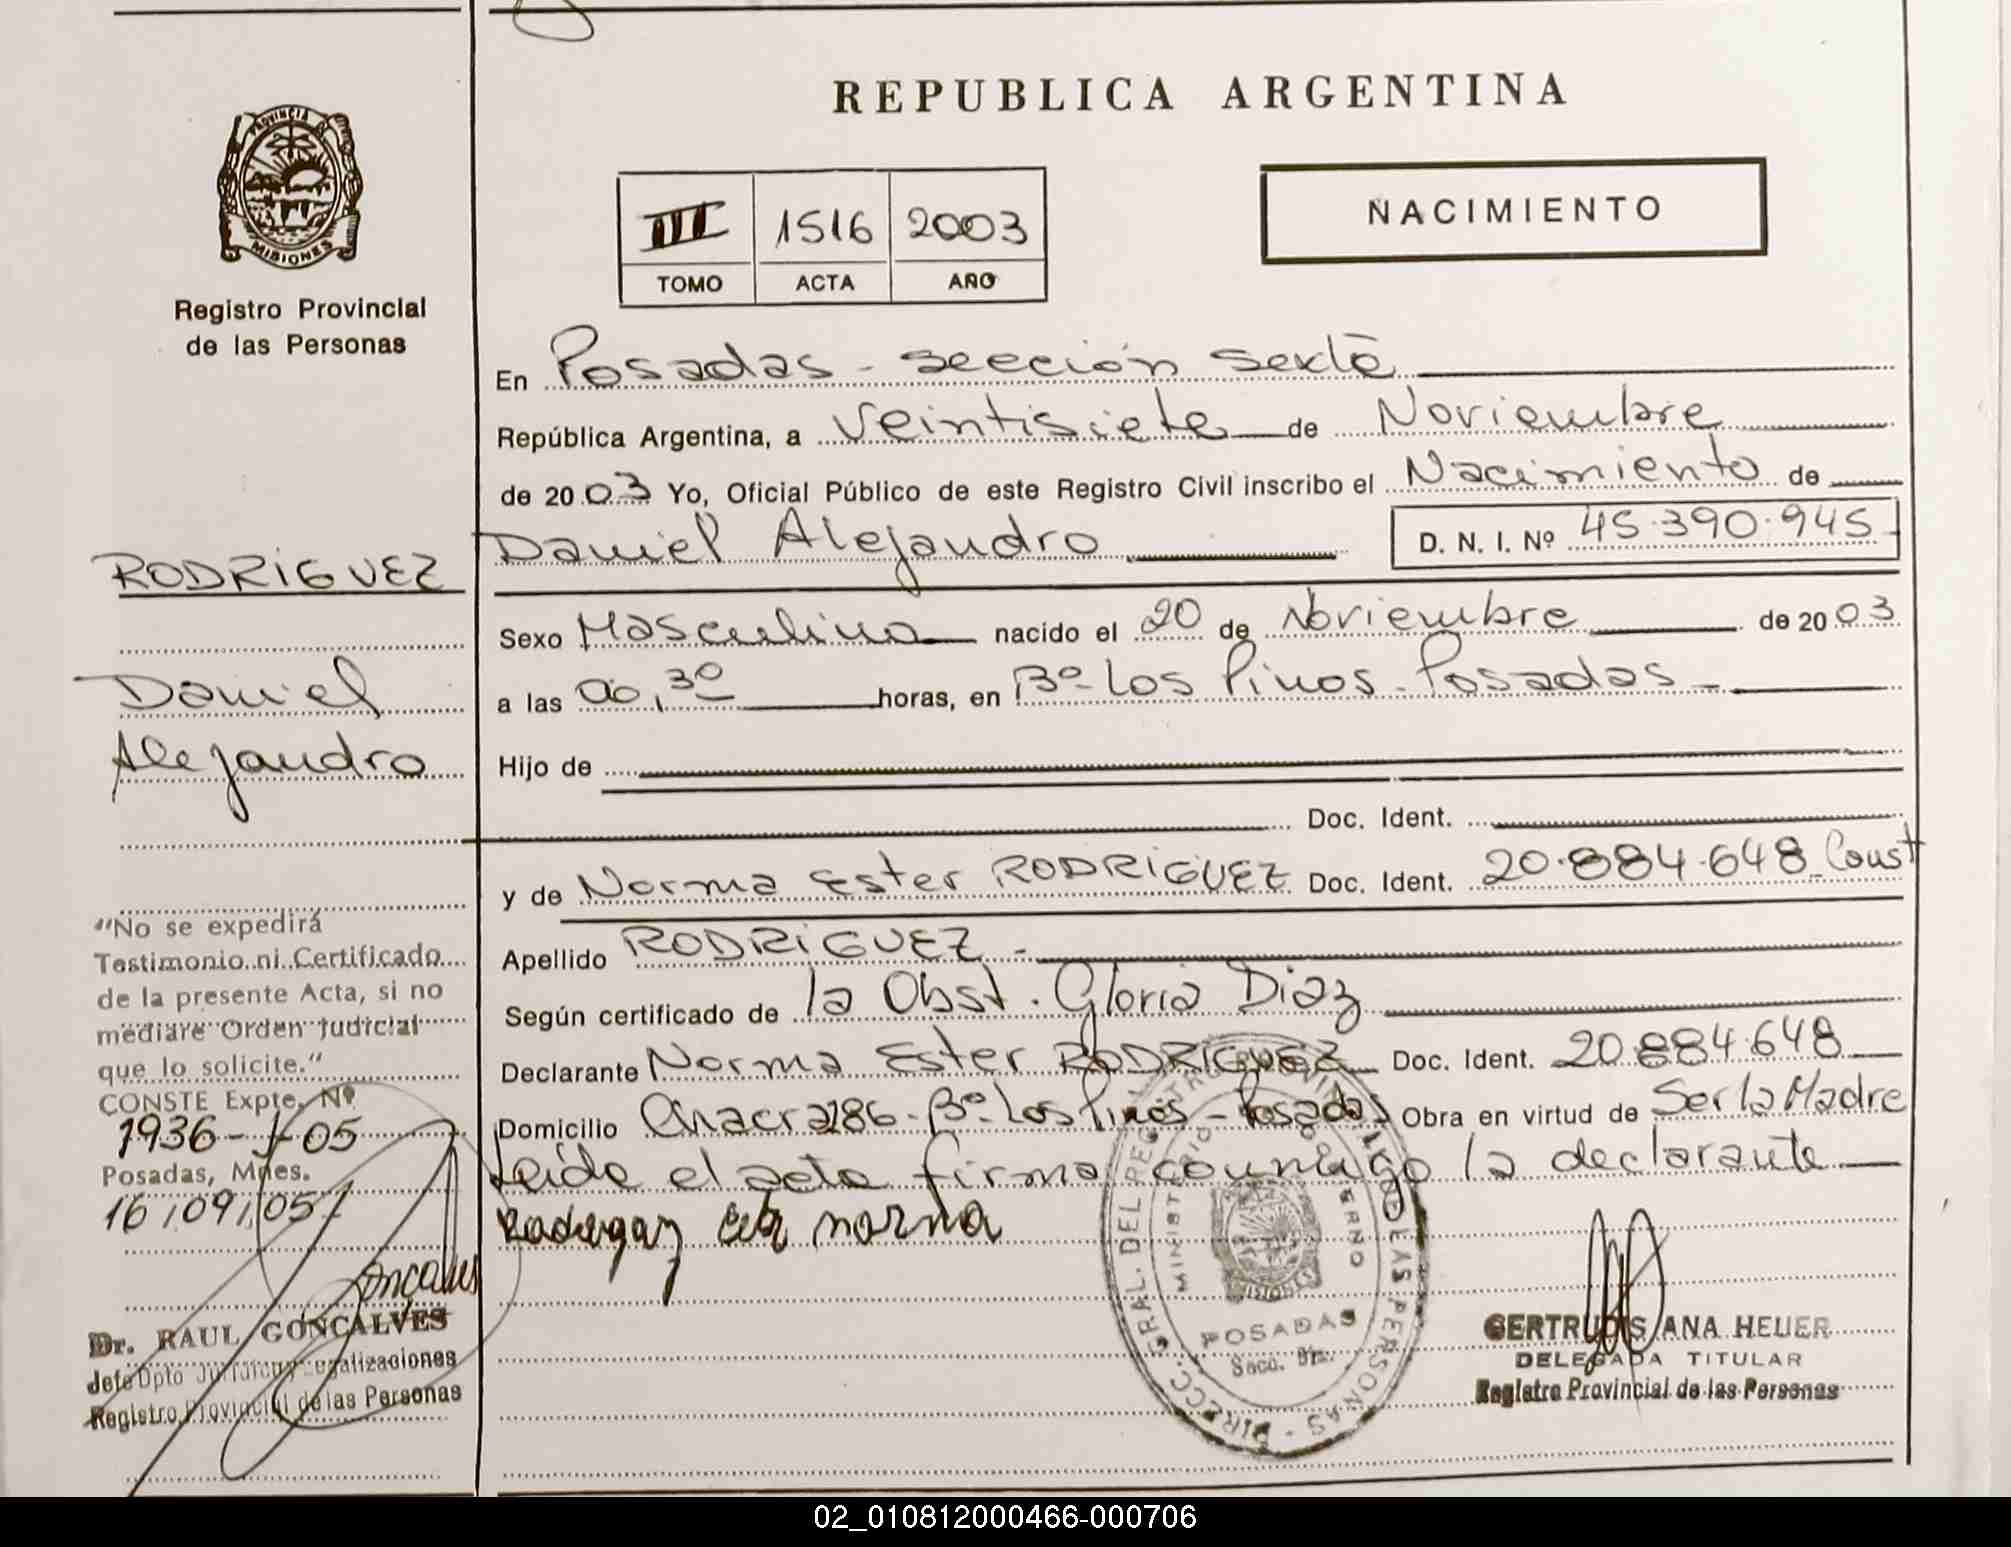 REPUBLICA ARGENTINA
PROVINCIA DE
MISIONES
Registro Provincial
de las Personas
III 1516 2003
TOMO ACTA AÑO
NACIMIENTO
En Posadas - sección sexta
República Argentina, a veintisiete de Noviembre
de 2003 Yo, Oficial Público de este Registro Civil inscribo el Nacimiento de
Daniel Alejandro D. N. I. Nº 45.390.945
Sexo Masculino nacido el 20 de Noviembre de 2003
a las 00,30 horas, en Bº Los Pinos - Posadas -
Hijo de
Doc. Ident.
y de Norma Ester RODRIGUEZ Doc. Ident. 20.884.648 Const
Apellido RODRIGUEZ -
Según certificado de la Obst. Gloria Diaz
Declarante Norma Ester RODRIGUEZ Doc. Ident. 20.884.648
Domicilio Chacra 186 - Bº Los Pinos - Posadas Obra en virtud de Ser la Madre
Leída el acta firma conmigo la declarante
norma
RODRIGUEZ
Daniel
Alejandro
"No se expedirá
Testimonio ni Certificado
de la presente Acta, si no
mediare Orden Judicial
que lo solicite."
CONSTE Expte. Nº
1936 - J - 05
Posadas, Mnes.
16,09,05
Goncalves
Dr. RAUL GONCALVES
Jefe Dpto Jurídico y Legalizaciones
Registro Provincial de las Personas
DIRECC. GRAL. DEL REGISTRO PROVINCIAL DE LAS PERSONAS -
MINISTERIO DE GOBIERNO
MISIONES
POSADAS
Secc. 6ta.
GERTRUDIS ANA HEUER
DELEGADA TITULAR
Registro Provincial de las Personas
02_010812000466-000706